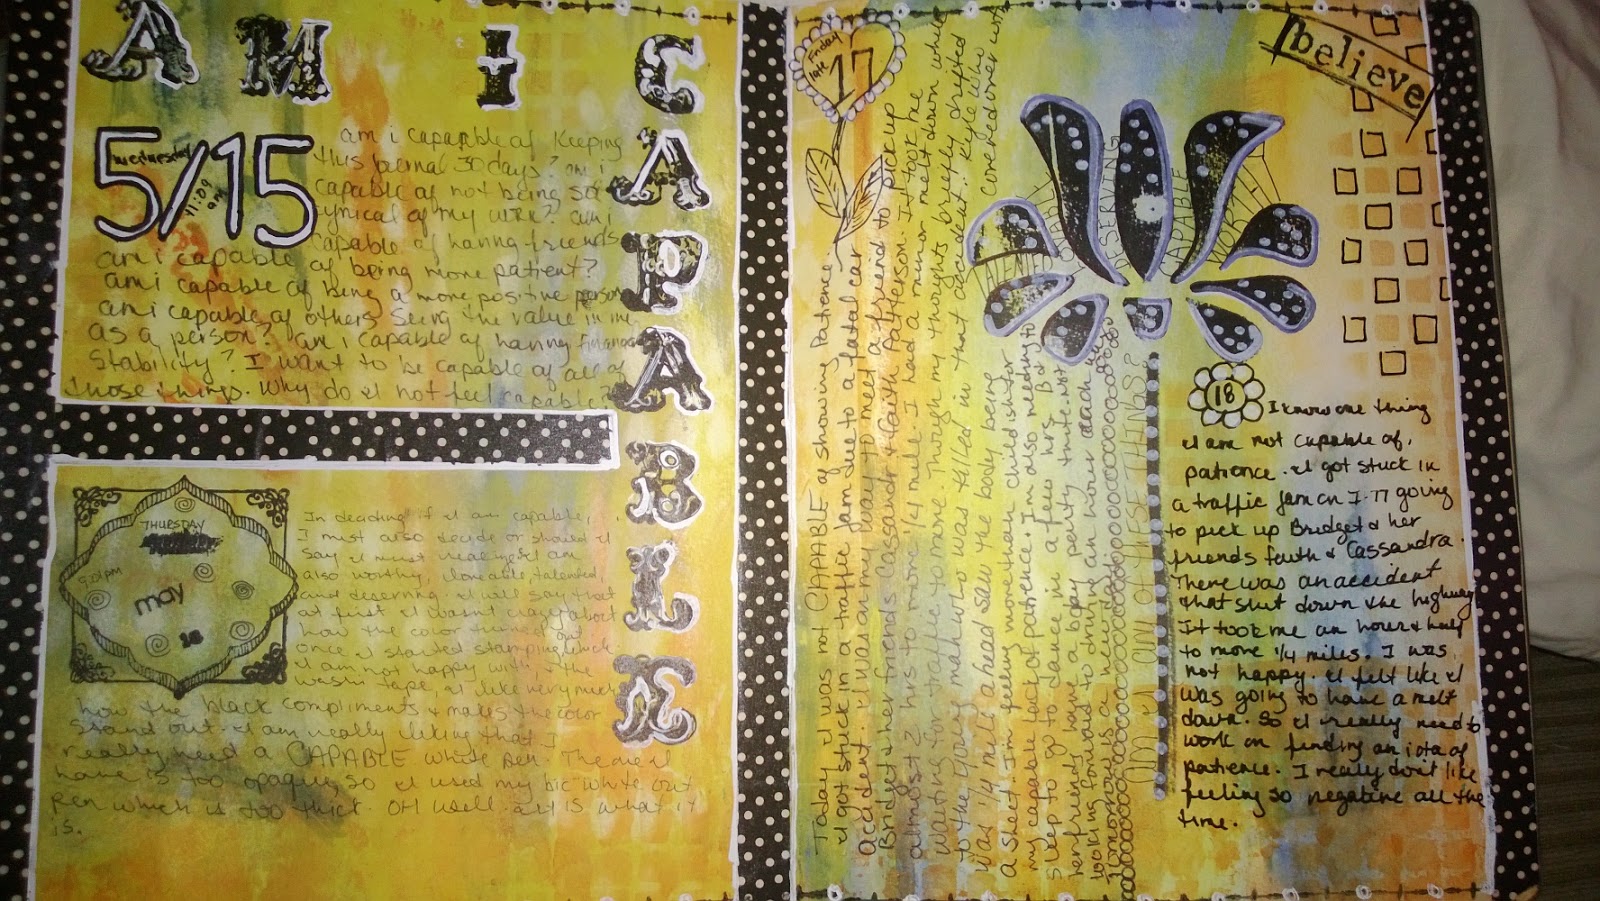 AM I
CAPABLE
5/15
Wednesday
11:09
am
am i capapable of Keeping
this journal 30 days? am i
capable of not being so
cynical of my work? am i
capable of having friends
am i capable of being more patient?
am i capable of being a more positive person
am i capable of others seing the value in me
as a person? am i capable of having financ
stability? I want to be capable of all of
those things. Why do I not feel capable?
THURSDAY
9:01pm
may
16
In deciding if I am capable,
I must also decide or should I
say I must realize I am
also worthy, loveable, talented,
and deserving. I will say that
at first I wasn't crazy about
how the color turned out
once I started stamping which
I am not happy with, & the
washi tape, I like very much
how the black compliments & makes the color
stand out. I am really liking that I
really need a CAPABLE white pen. The one I
have is too opaque, so I used my bic white out
pen which is too thick. OH well. art is what it
is.
Friday
late
17
Today I was not CAPABLE of showing Patience
I got stuck in a traffic jam due to a fatal car
accident. I was on my way to meet a friend to pick up
Bridget & her friends Cassandra & Faith Patterson. It took me
almost 2 hrs to move 1/4 mile. I had a minor melt down while
waiting for traffic to move. Though my thoughts briefly drifted
to the young man who was killed in that accident. Kyle who
was 1/4 mile a head saw the body being covered over with
a sheet. I'm feeling more than childish for
my capable lack of patience. I'm also needing to
sleep to go to dance in a few hrs. But
her friends have a bay penty thute. Not
looking forward to driving an hour each way.
Tomorrow is a new day.
believe
PATIENT
DESERVING
CAPABLE
WORTHY
AM I ANY OF THESE THINGS?
18
I know one thing
I am not capable of,
patience. I got stuck in
a traffic jam on I-77 going
to pick up Bridget & her
friends faith & Cassandra.
There was an accident
that shut down the highway
It took me an hour & half
to move 1/4 miles. I was
not happy. I felt like I
was going to have a melt
down. So I really need to
work on finding an iota of
patience. I really don't like
feeling so negative all the
time.